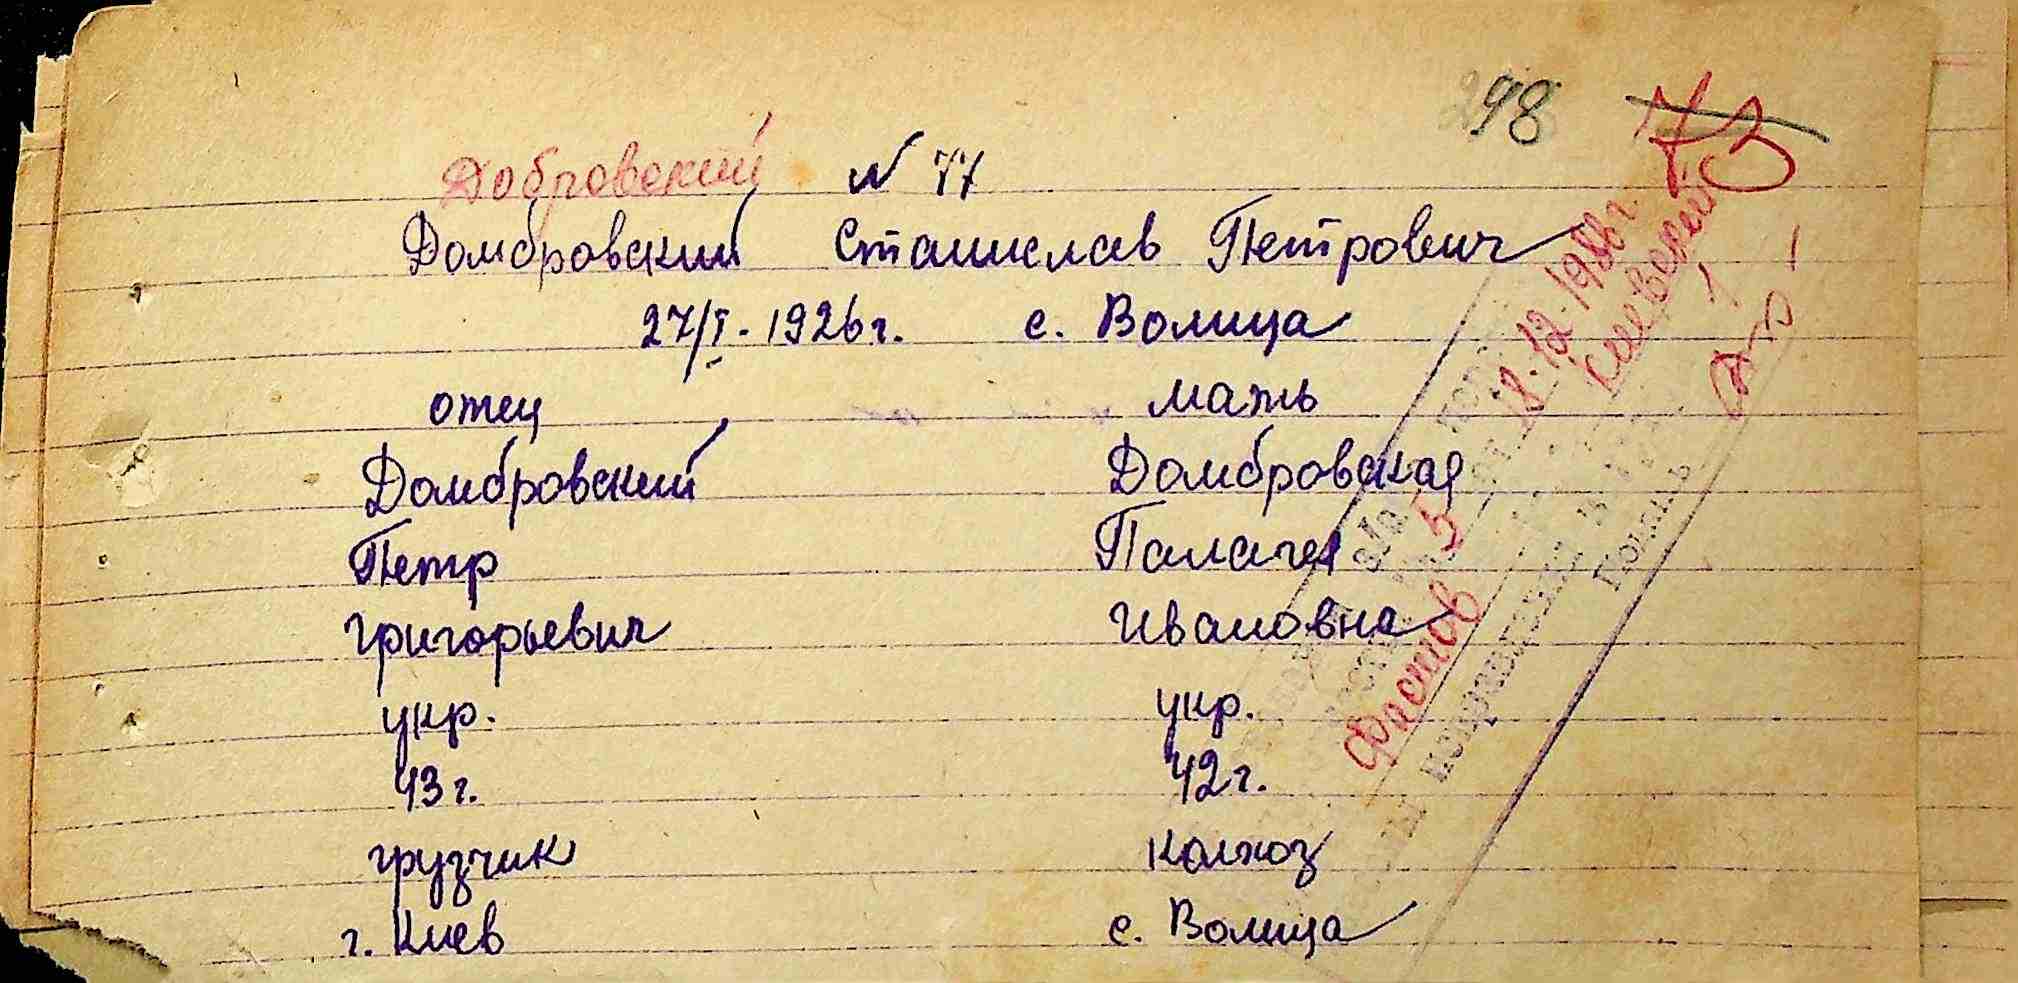 98 73
Добровский N 77
Домбровский Станислав Петрович
27/I - 1926 г. с. Волица
отец мать
Домбровский Домбровская
Петр Палагея
Григорьевич Ивановна
укр. укр.
43 г. 42 г.
грузчик колхоз
г. Киев с. Волица
18.12.1988 г.
Киевской
Фастов